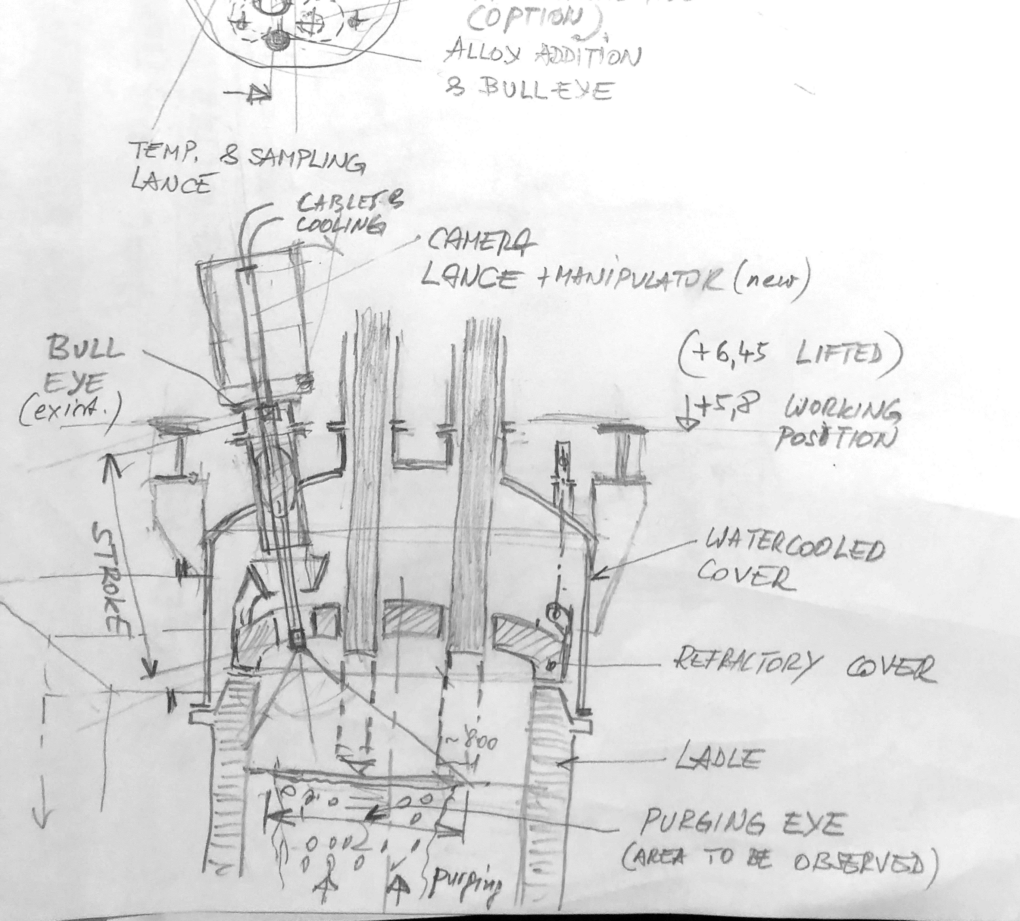 (OPTION)
ALLOY ADDITION
& BULLEYE
TEMP. & SAMPLING
LANCE
CABLES &
COOLING
CAMERA
LANCE + MANIPULATOR (new)
BULL
EYE
(exint.)
(+6,45 LIFTED)
+5,8 WORKING
POSITION
STROKE
WATERCOOLED
COVER
REFRACTORY COVER
~800
LADLE
PURGING EYE
(AREA TO BE OBSERVED)
purging